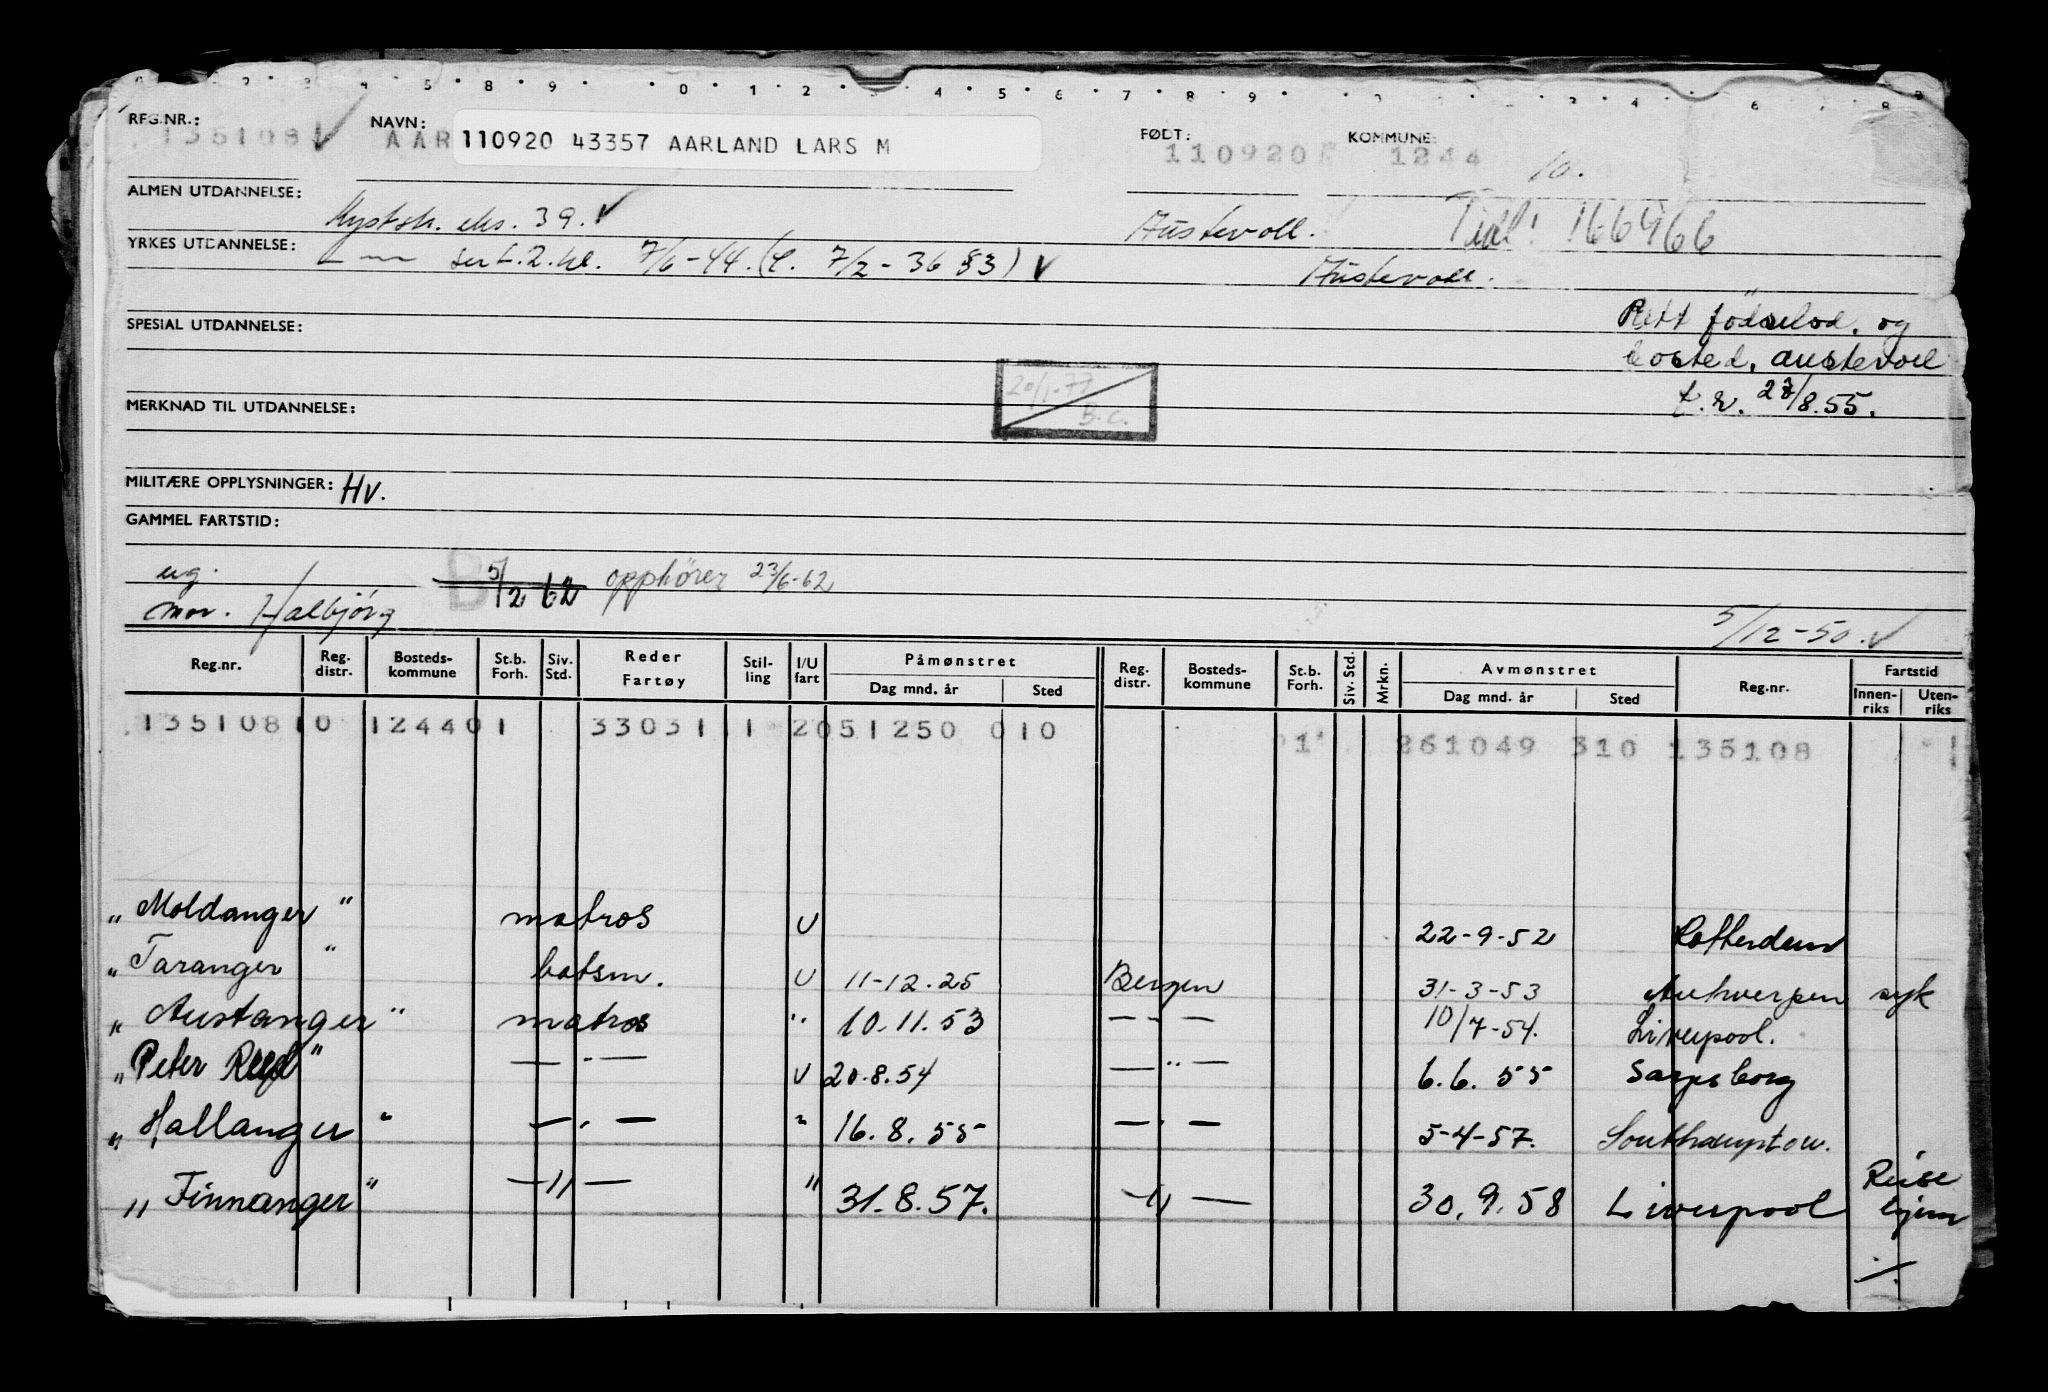 REG.NR.: 135108 NAVN: AAR 110920 43357 AARLAND LARS M FØDT: 110920 KOMMUNE: 1244
10.
ALMEN UTDANNELSE: Kystsk. eks. 39. Austevoll. Tidl! 166466
YRKES UTDANNELSE: sert. 2. kl. 7/6-44. (l. 7/2-36 §3) Austevoll.
SPESIAL UTDANNELSE:
Rett fødselsd. og
bosted. austevoll
t.r. 23/8.55.
20/1-77
B.C.
MERKNAD TIL UTDANNELSE:
MILITÆRE OPPLYSNINGER: HV.
GAMMEL FARTSTID:
ug. B 5/2 62 opphører 23/6-62
mor. Halbjörg 5/12-50.
Reg.nr. Reg. distr. Bosteds-kommune St.b. Forh. Siv. Std. Reder Fartøy Stil-ling I/U fart Påmønstret Reg. distr. Bosteds-kommune St.b. Forh. Siv. Std. Mrkn. Avmønstret Reg.nr. Fartstid
Dag mnd. år Sted Dag mnd. år Sted Innen-riks Uten-riks
135108 10 124401 33031 1 2051250 010
1 261049 310 135108
" Moldanger " matros U 22-9-52 Rotterdam
" Taranger " batsm. U 11-12.25 Bergen 31-3-53 Antwerpen syk
" Austanger " matros " 10.11.53 — " — 10/7-54. Liverpool.
" Peter Reed " — " — U 20.8.54 — " — 6.6.55 Sarpsborg
" Hallanger " — " — " 16.8.55 — " — 5-4-57. Southampton.
" Finnanger " — " — " 31.8.57. — " — 30.9.58 Liverpool Reise hjem
./.